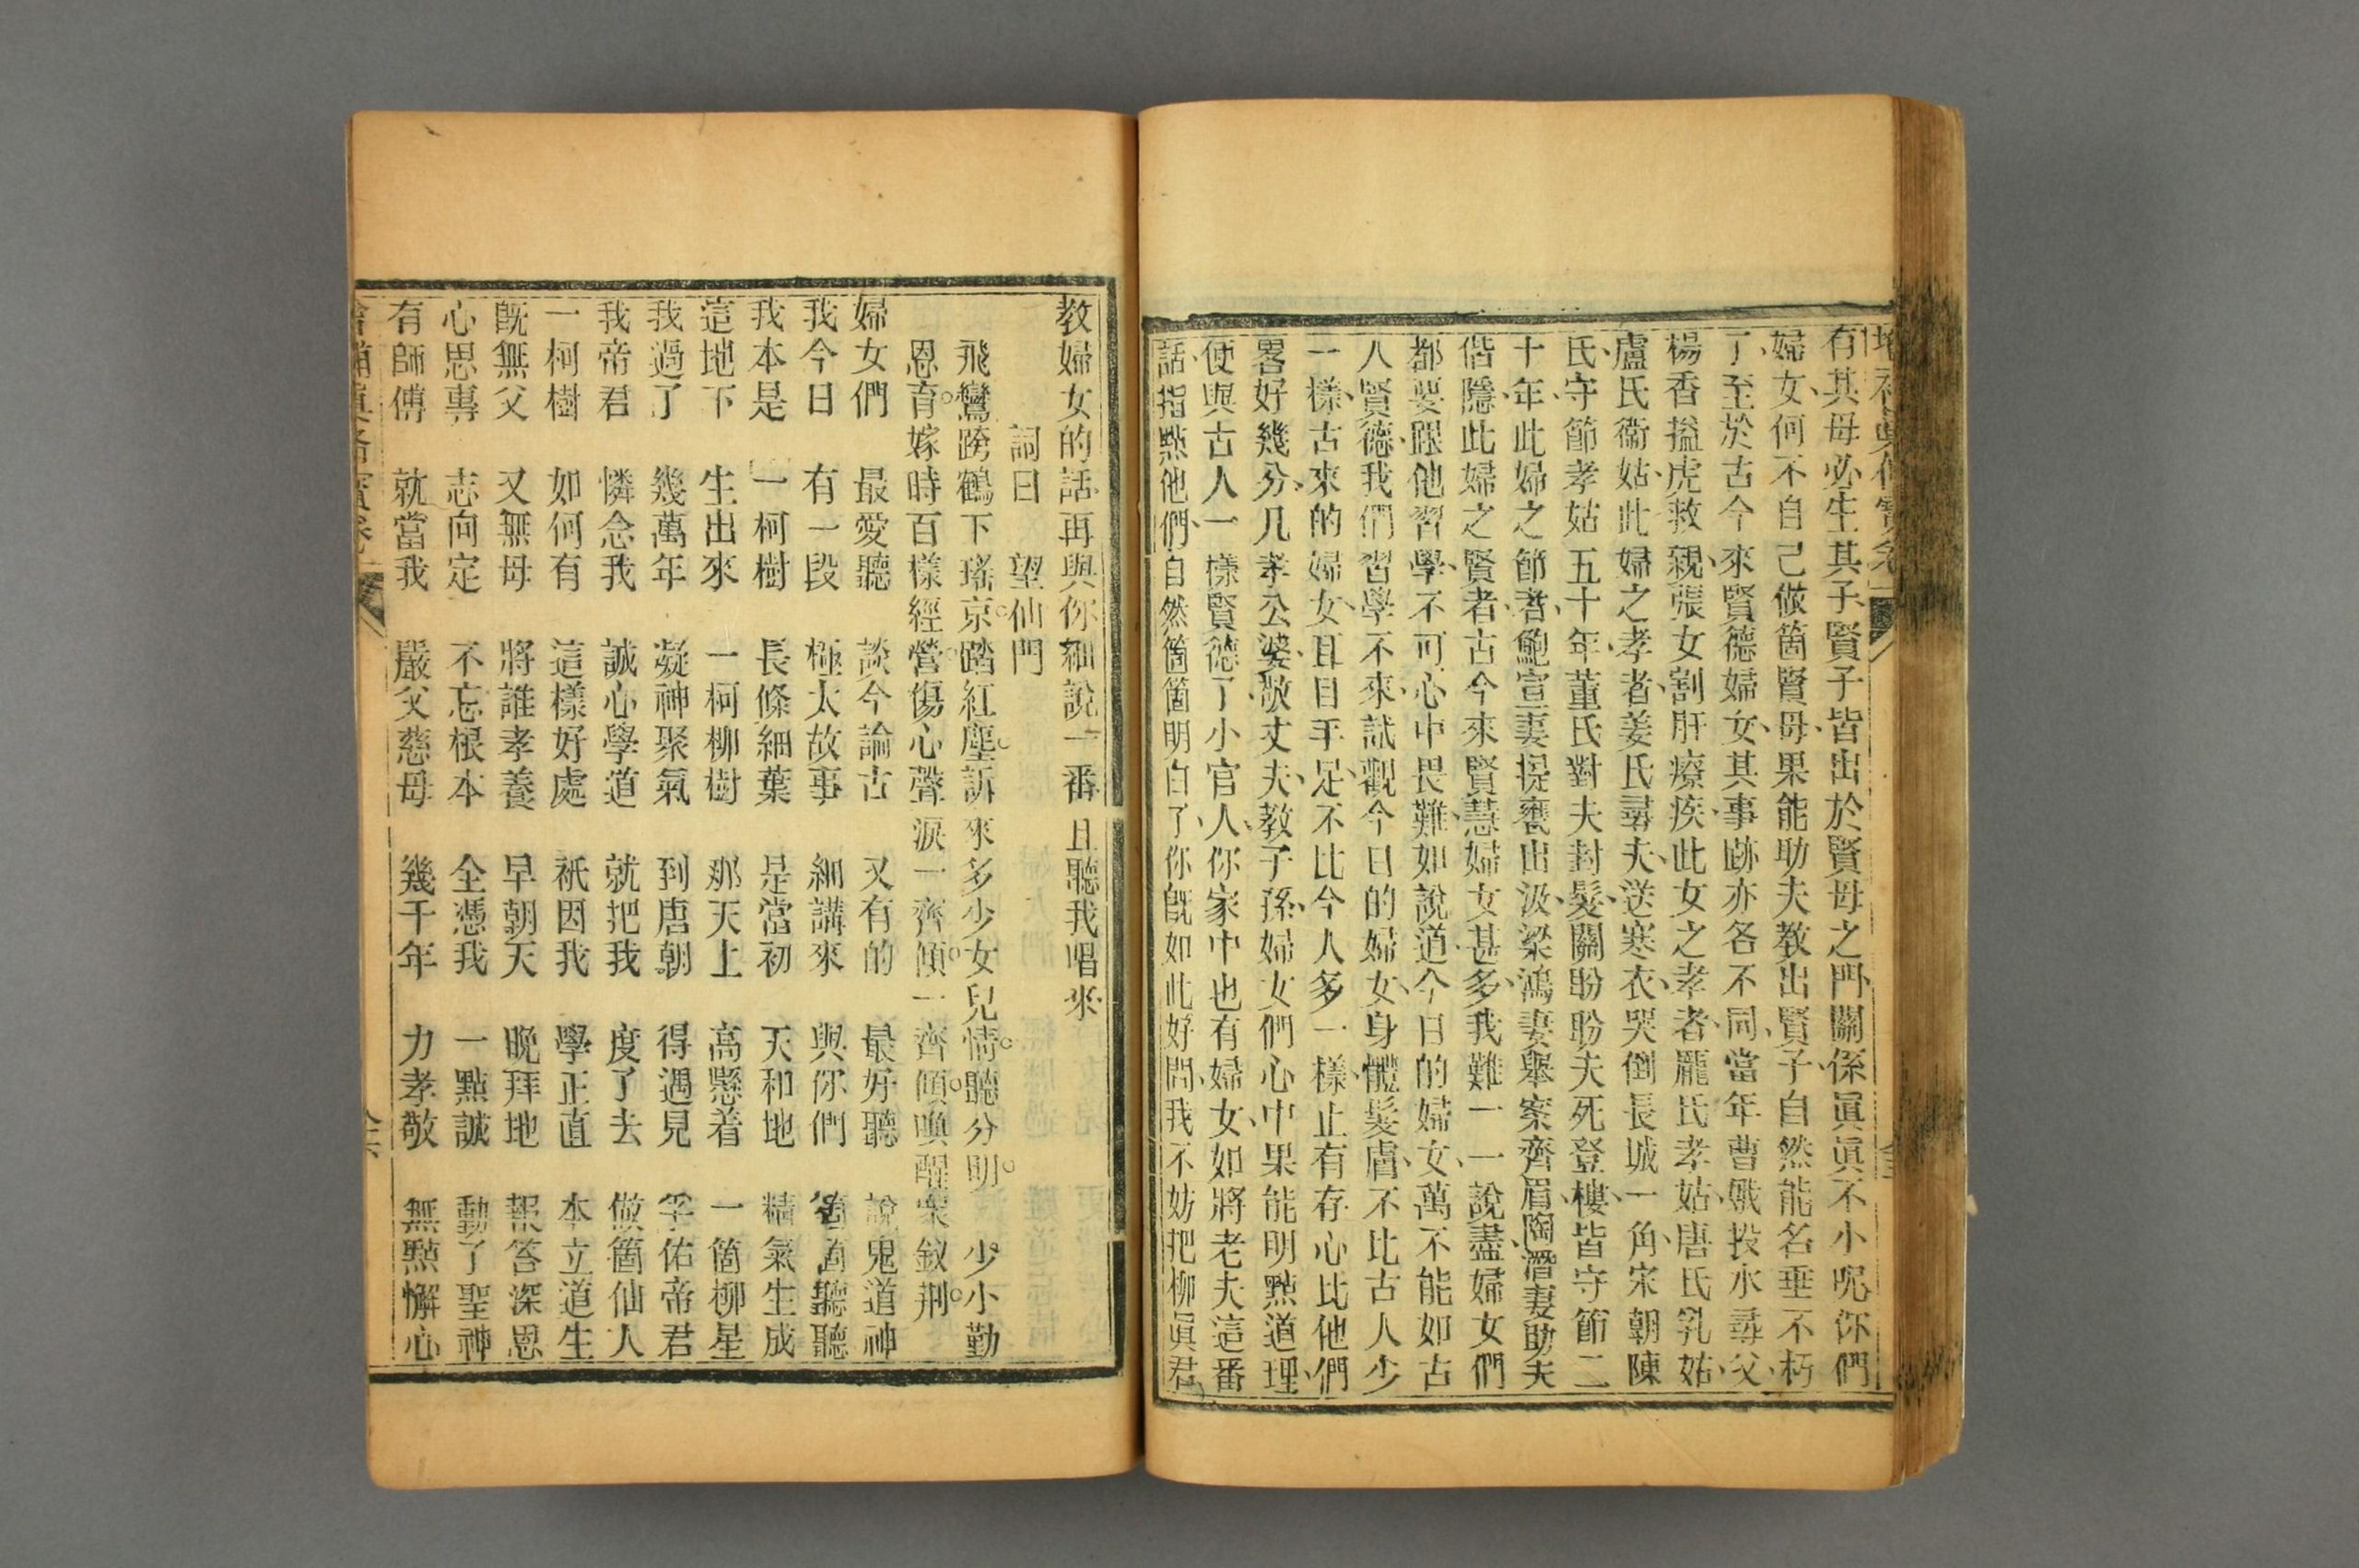 有其母必生其子賢子皆出於賢母之門關係眞眞不小呢你們
婦女何不自己做箇賢母果能助夫教出賢子自然能名垂不朽
了至於古今來賢德婦女其事跡亦各不同當年曹娥投水尋父
楊香搤虎救親張女割肝療疾此女之孝者龐氏孝姑唐氏乳姑
盧氏衛姑此婦之孝者姜氏尋夫送寒衣哭倒長城一角宋朝陳
氏守節孝姑五十年董氏對夫封髮關盼盼夫死登樓皆守節二
十年此婦之節者鮑宣妻提甕出汲梁鴻妻舉案齊眉陶潛妻助夫
偕隱此婦之賢者古今來賢慧婦女甚多我難一一說盡婦女們
都要跟他習學不可心中畏難如說道今日的婦女萬不能如古
人賢德我們習學不來試觀今日的婦女身體髮膚不比古人少
一樣古來的婦女耳目手足不比今人多一樣止有存心比他們
畧好幾分凡孝公婆敬丈夫教子孫婦女們心中果能明點道理
便與古人一樣賢德了小官人你家中也有婦女如將老夫這番
話指點他們自然箇箇明白了你旣如此好問我不妨把柳眞君
教婦女的話再與你細說一番且聽我唱來
詞曰 望仙門
飛鸞跨鶴下瑤京。踏紅塵。訴來多少女兒情。聽分明。 少小勤
恩育。嫁時百樣經營。傷心聲淚一齊傾。一齊傾。喚醒衆釵荆。
婦女們 最愛聽 談今論古 又有的 最好聽 說鬼道神
我今日 有一段 極太故事 細講來 與你們 箇箇聽聽
我本是 一柯樹 長條細葉 是當初 天和地 精氣生成
這地下 生出來 一柯柳樹 那天上 高懸着 一箇柳星
我過了 幾萬年 凝神聚氣 到唐朝 得遇見 孚佑帝君
我帝君 憐念我 誠心學道 就把我 度了去 做箇仙人
一柯樹 如何有 這樣好處 祇因我 學正直 本立道生
旣無父 又無母 將誰孝養 早朝天 晚拜地 報答深恩
心思專 志向定 不忘根本 全憑我 一點誠 動了聖神
有師傅 就當我 嚴父慈母 幾千年 力孝敬 無點懈心